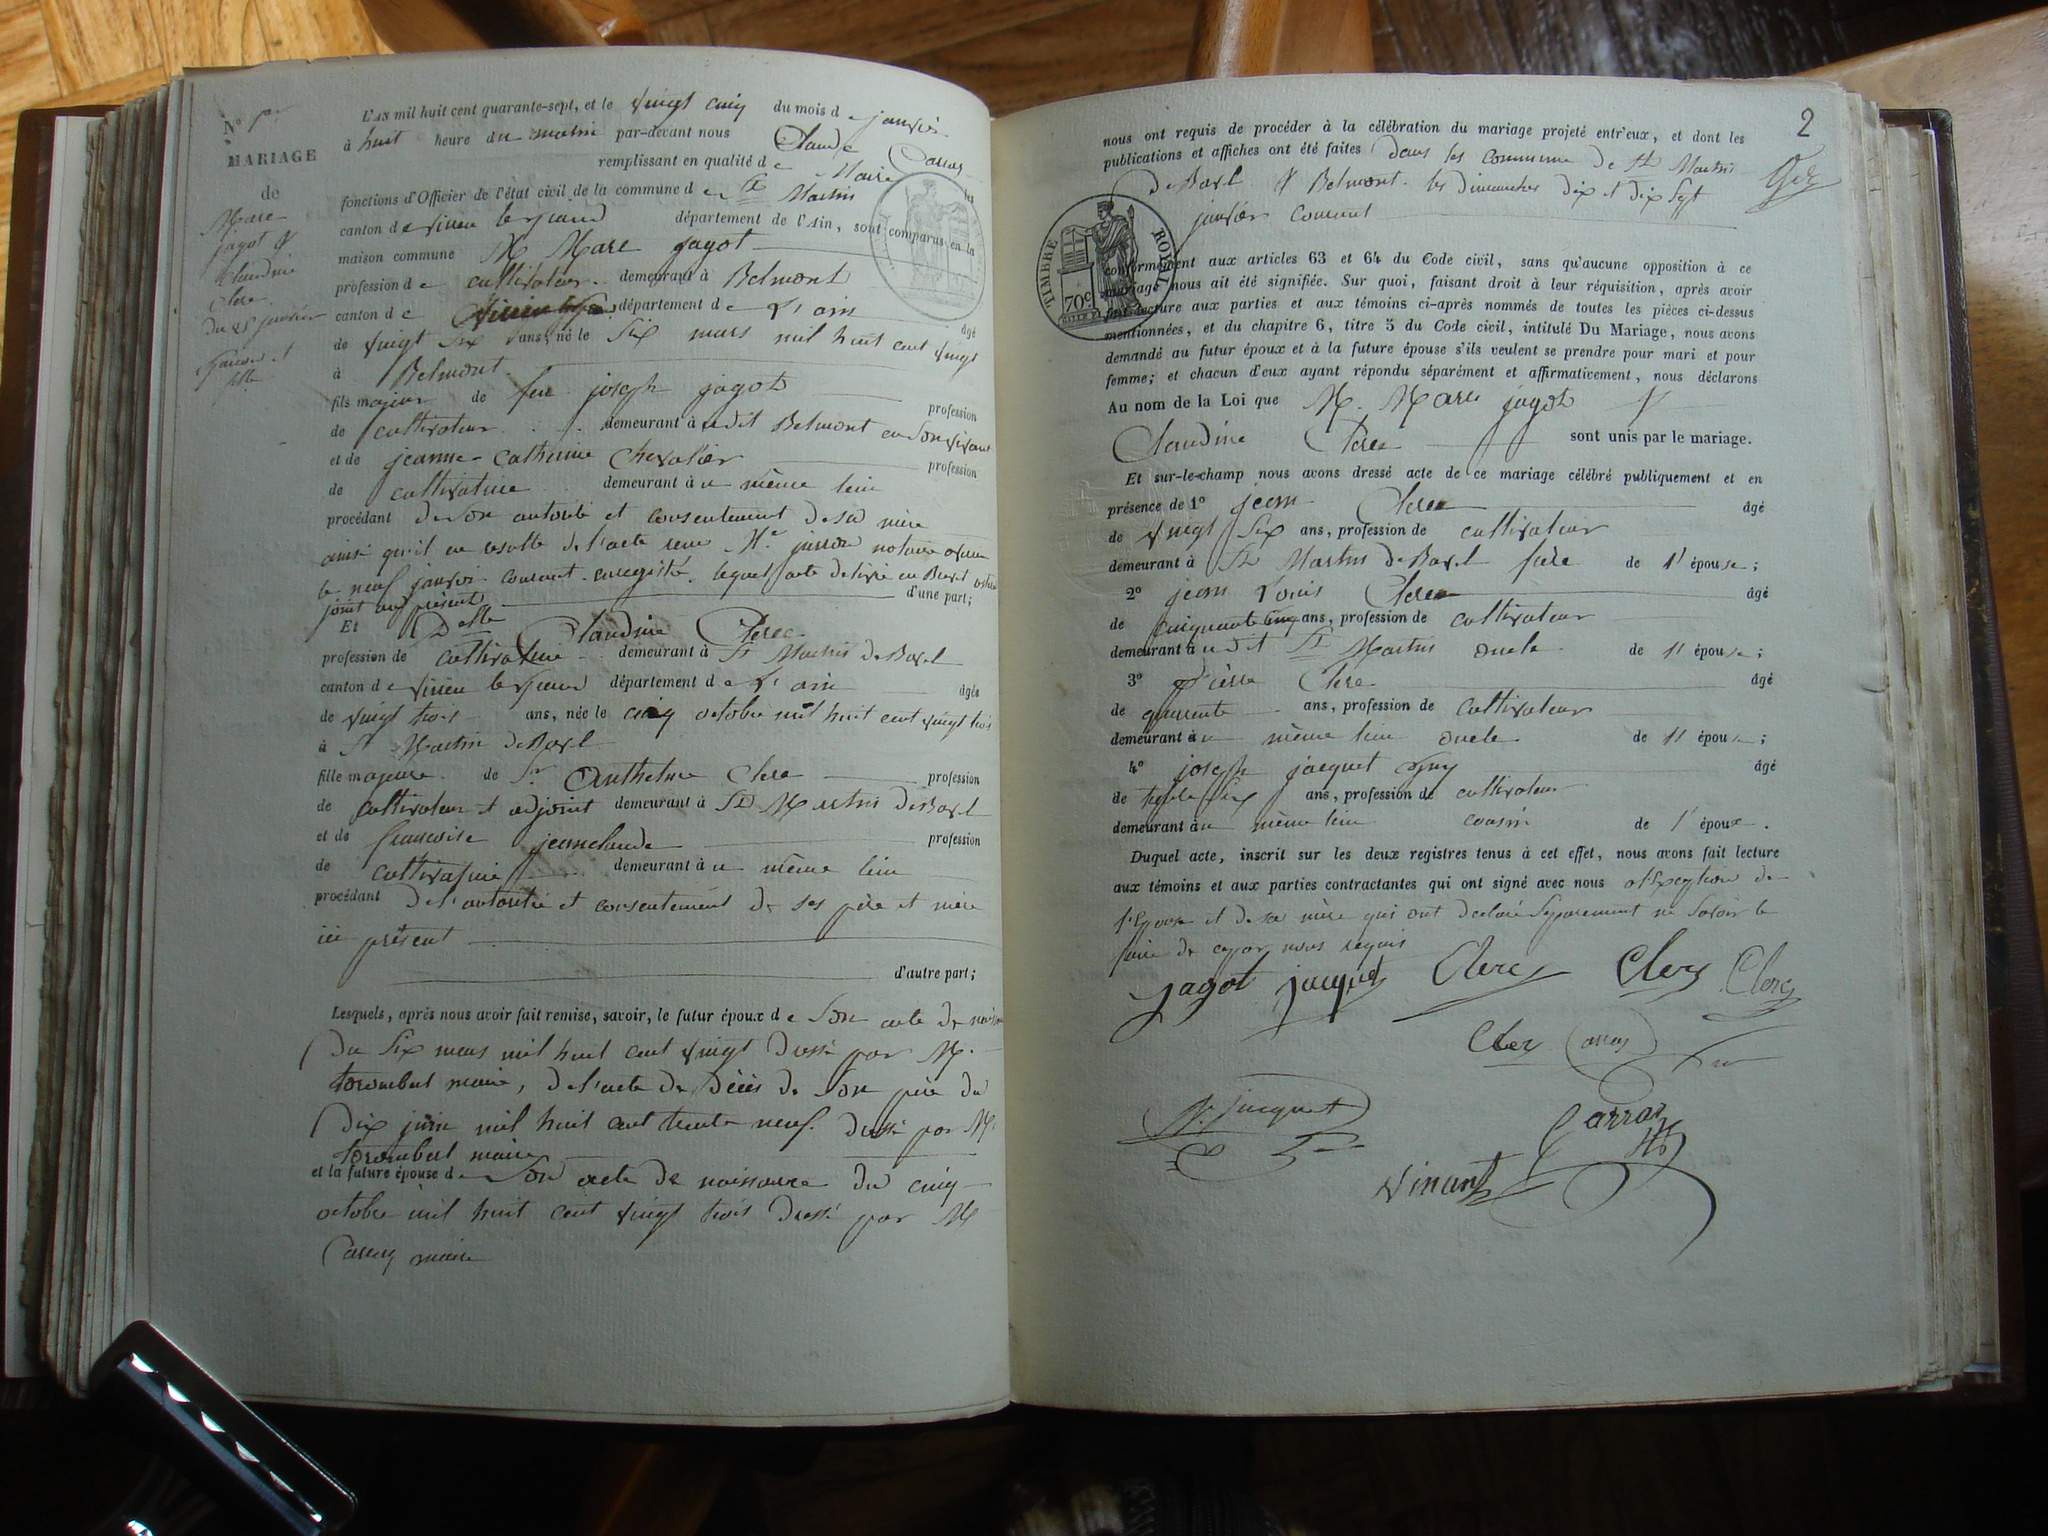 N° 1er
MARIAGE
de
Marc
jagot &
Claudine
Clerc
du 25 janvier
garçon et
fille
L'AN mil huit cent quarante-sept, et le vingt cinq du mois de janvier
à huit heure du matin par-devant nous Claude Carraz
remplissant en qualité de Maire les
fonctions d'Officier de l'état civil de la commune de St Martin
canton de virieu le grand département de l'Ain, sont comparus en la
maison commune M Marc jagot
profession de cultivateur demeurant à Belmont
canton de virieu le grand département de L'ain âgé
de vingt six ans, né le six mars mil huit cent vingt
à Belmont
fils majeur de feu joseph jagot profession
de cultivateur demeurant à udit Belmont en son vivant
et de jeanne-catherine chevalier profession
de cultivatrice demeurant à u même lieu
procédant de son autorité et consentement de sa mère
ainsi qu'il en resulte de l'acte reçu Me notaire
le neuf janvier courant enregistré, lequel acte délivré en Brevet
joint au présent d'une part;
Et Delle Claudine Clerc
profession de cultivatrice demeurant à St Martin de Bavel
canton de virieu le grand département de L'ain âgée
de vingt trois ans, née le cinq octobre mil huit cent vingt trois
à St Martin de Bavel
fille majeure de Sr Anthelme Clerc profession
de cultivateur et adjoint demeurant à St Martin de Bavel
et de françoise jeanclaude profession
de cultivatrice demeurant à u même lieu
procédant de l'autorité et consentement de ses père et mère
ici présent
d'autre part;
Lesquels, après nous avoir fait remise, savoir, le futur époux de son acte de
du six mars mil huit cent vingt dressé par M.
trombert maire, de l'acte de décès de son père du
dix juin mil huit cent trente neuf dressé par M
trombert maire
et la future épouse de son acte de naissance du cinq
octobre mil huit cent vingt trois dressé par M
Carraz maire
2
nous ont requis de procéder à la célébration du mariage projeté entr'eux, et dont les
publications et affiches ont été faites dans les commune de St Martin
de Bavel & Belmont les dimanches dix et dix sept
janvier courant
TIMBRE ROYAL
70c
conformément aux articles 63 et 64 du Code civil, sans qu'aucune opposition à ce
mariage nous ait été signifiée. Sur quoi, faisant droit à leur réquisition, après avoir
fait lecture aux parties et aux témoins ci-après nommés de toutes les pièces ci-dessus
mentionnées, et du chapitre 6, titre 5 du Code civil, intitulé Du Mariage, nous avons
demandé au futur époux et à la future épouse s'ils veulent se prendre pour mari et pour
femme; et chacun d'eux ayant répondu séparément et affirmativement, nous déclarons
Au nom de la Loi que M. Marc jagot &
Claudine Clerc sont unis par le mariage.
Et sur-le-champ nous avons dressé acte de ce mariage célébré publiquement et en
présence de 1° jean Clerc âgé
de vingt six ans, profession de cultivateur
demeurant à St Martin de Bavel frère de l'épouse;
2° jean Louis Clerc âgé
de cinquante cinq ans, profession de cultivateur
demeurant à udit St Martin oncle de l'épouse;
3° Pierre Clerc âgé
de quarente ans, profession de cultivateur
demeurant à u même lieu oncle de l'épouse;
4° joseph jacquet âgé
de trente six ans, profession de cultivateur
demeurant à u même lieu cousin de l'époux.
Duquel acte, inscrit sur les deux registres tenus à cet effet, nous avons fait lecture
aux témoins et aux parties contractantes qui ont signé avec nous à l'exception de
l'Epouse et de sa mère qui ont declaré séparement ne savoir le
faire de ce par nous requis
jagot jacquet Clerc Clerc Clerc
Clerc Carraz
jacquet Carraz
vinant